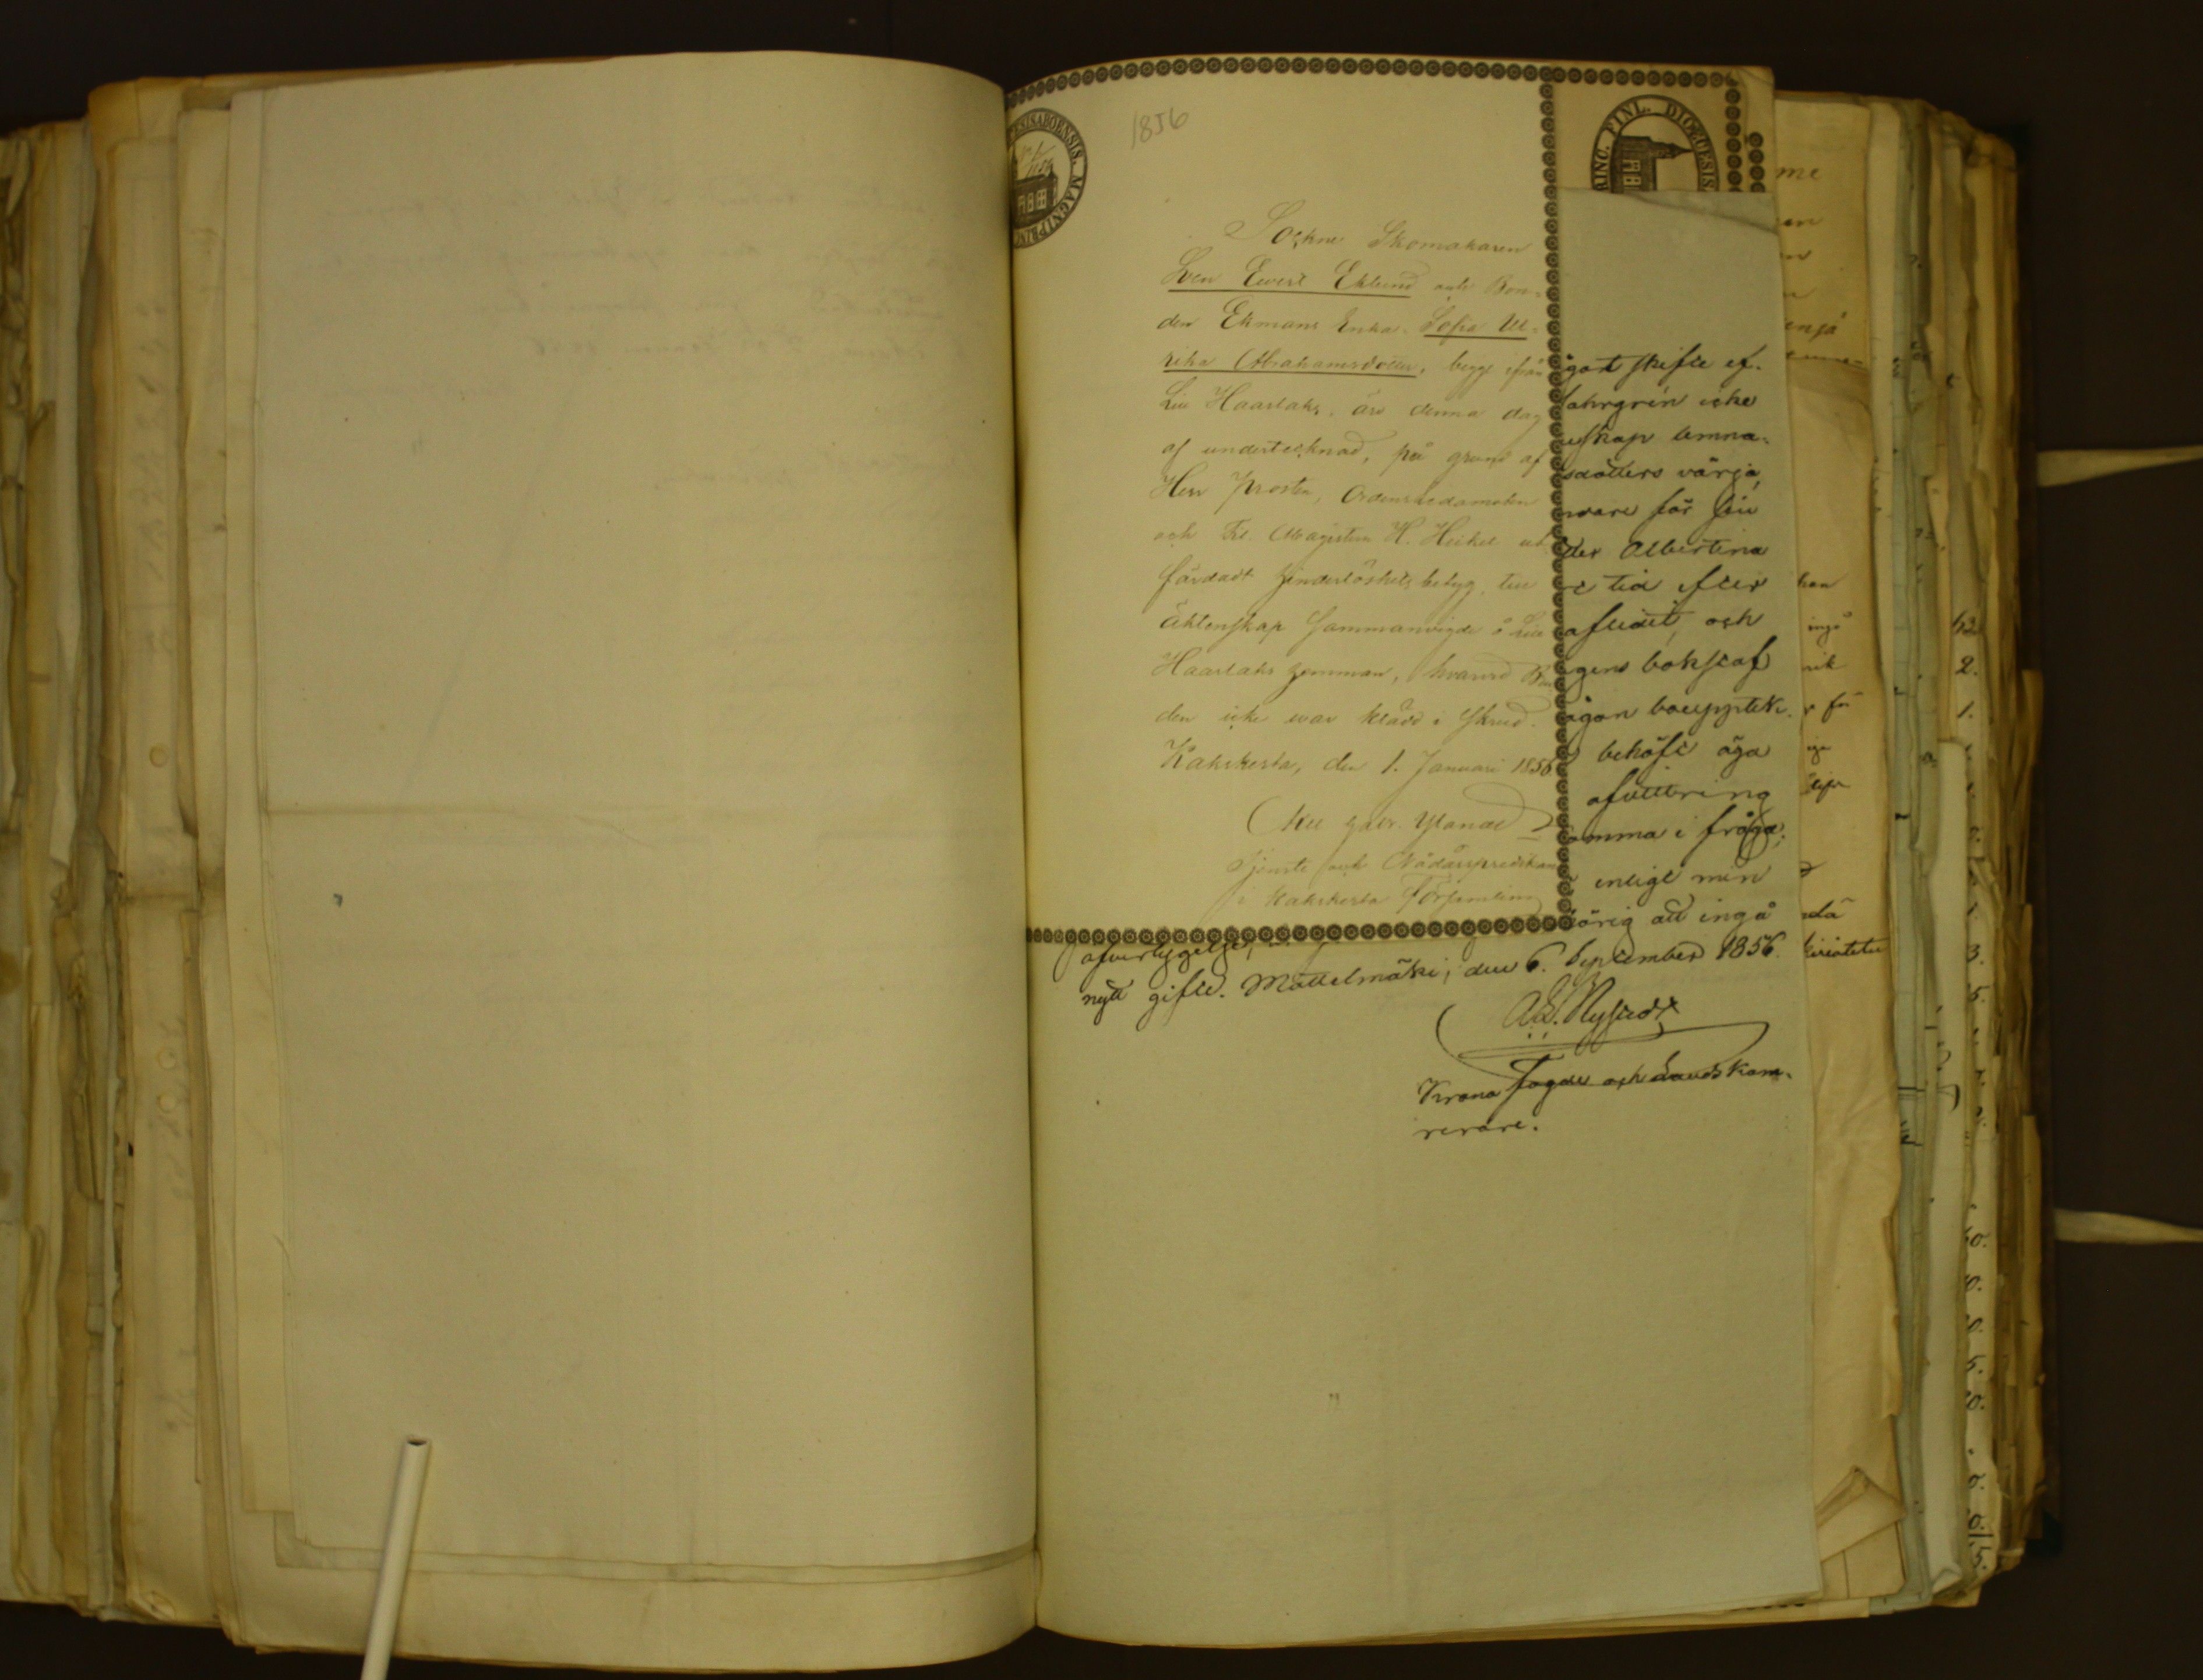 1856
Sockne Skomakaren
Sven Evert Eklund och Bon-
den Ekmans Enka Sofia Ul-
rika Abrahamsdotter, begge från
Lill Haarlaks, äro denna dag
af undertecknad, på grund af
Herr Prosten, Ordensledamoten
och Fil. Magistern H. Heikel ut-
färdadt hinderlöshets betyg, till
Äktenskap sammanvigde å Lill
Haarlaks hemman, hvarvid Bru-
den icke war klädd i skrud.
Kakskerta, den 1. Januari 1856
Tjenste och Nådårspredikant
i Kakskerta Församling
FINL. DIOECESIS
MAGNI PRINC
ågot skifte ef-
ahrgrén icke
skap lemna-
sdotters värja,
ware för sin
der Albertina
e tid efter
aflidit, och
gens bokstaf
ågon bouppteck-
behöft äga
afvittring
omma i fråga;
enligt min
hörig att ingå
öfvertygelse,
nytt gifte. Mattelmäki, den 6. September 1856.
Krono Fogde och Landskam-
rerare.